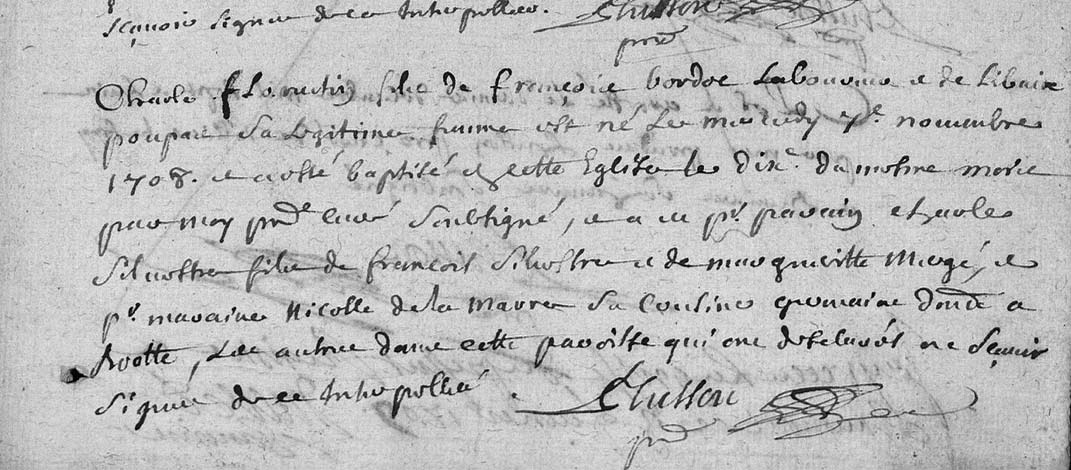 Sçavoir signer de ce Interpellée. Chusson
prre
Charle Florentin fils de François bordoe Labonne et de Libaire
poupar sa Legitime femme est né Le mercredy 7e novembre
1708. et a esté baptisé en cette Eglise le dixe. du mesme mois
par moy prre curé soubsigné, et a eu pr. parain Charles
Silvestre fils de François Silvestre et de margueritte Mergé, et
pr. maraine Nicolle de la Marre sa Cousine germaine a
, Les autres dans cette paroisse qui ont declarés ne Sçavoir
signer de ce Interpellés. Chusson
prre